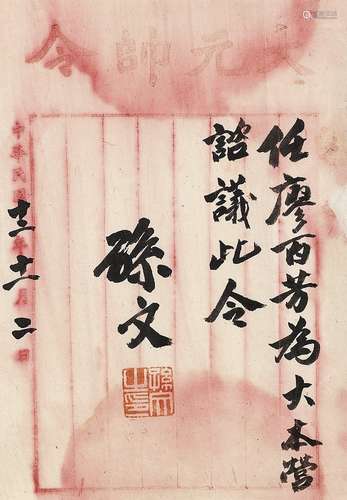 大元帥令
任廖百芳為大本營
諮議此令
孫文
孫文之印
中華民國十三年十一月二日